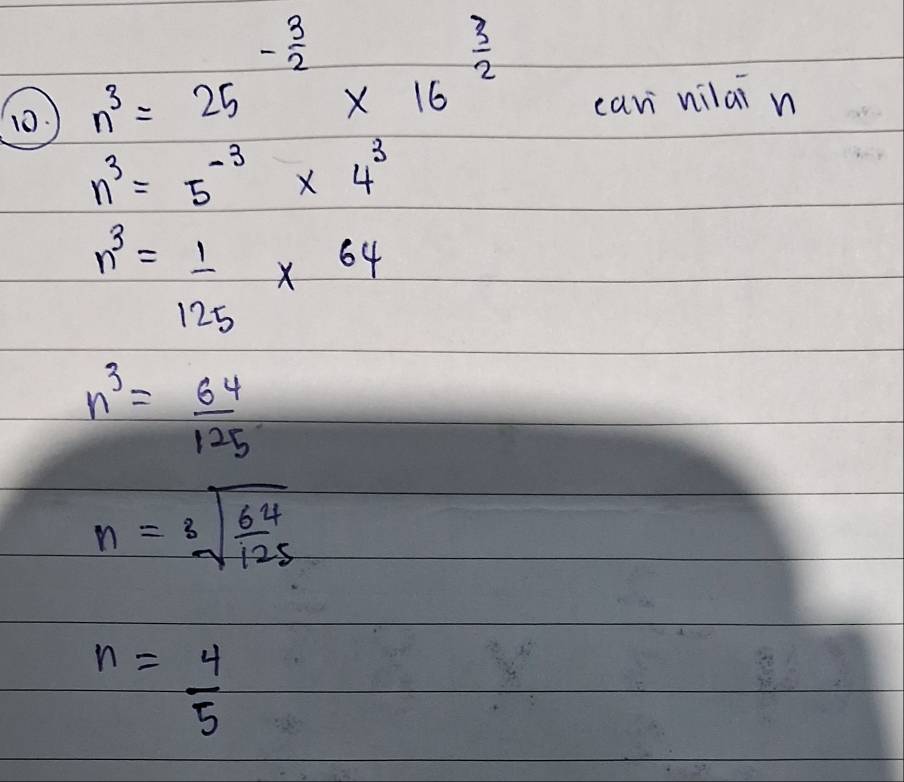 10. n³ = 25^(-3/2) × 16^(3/2) cari nilai n
n³ = 5⁻³ × 4³
n³ = 1/125 × 64
n³ = 64/125
n = ³√(64/125)
n = 4/5